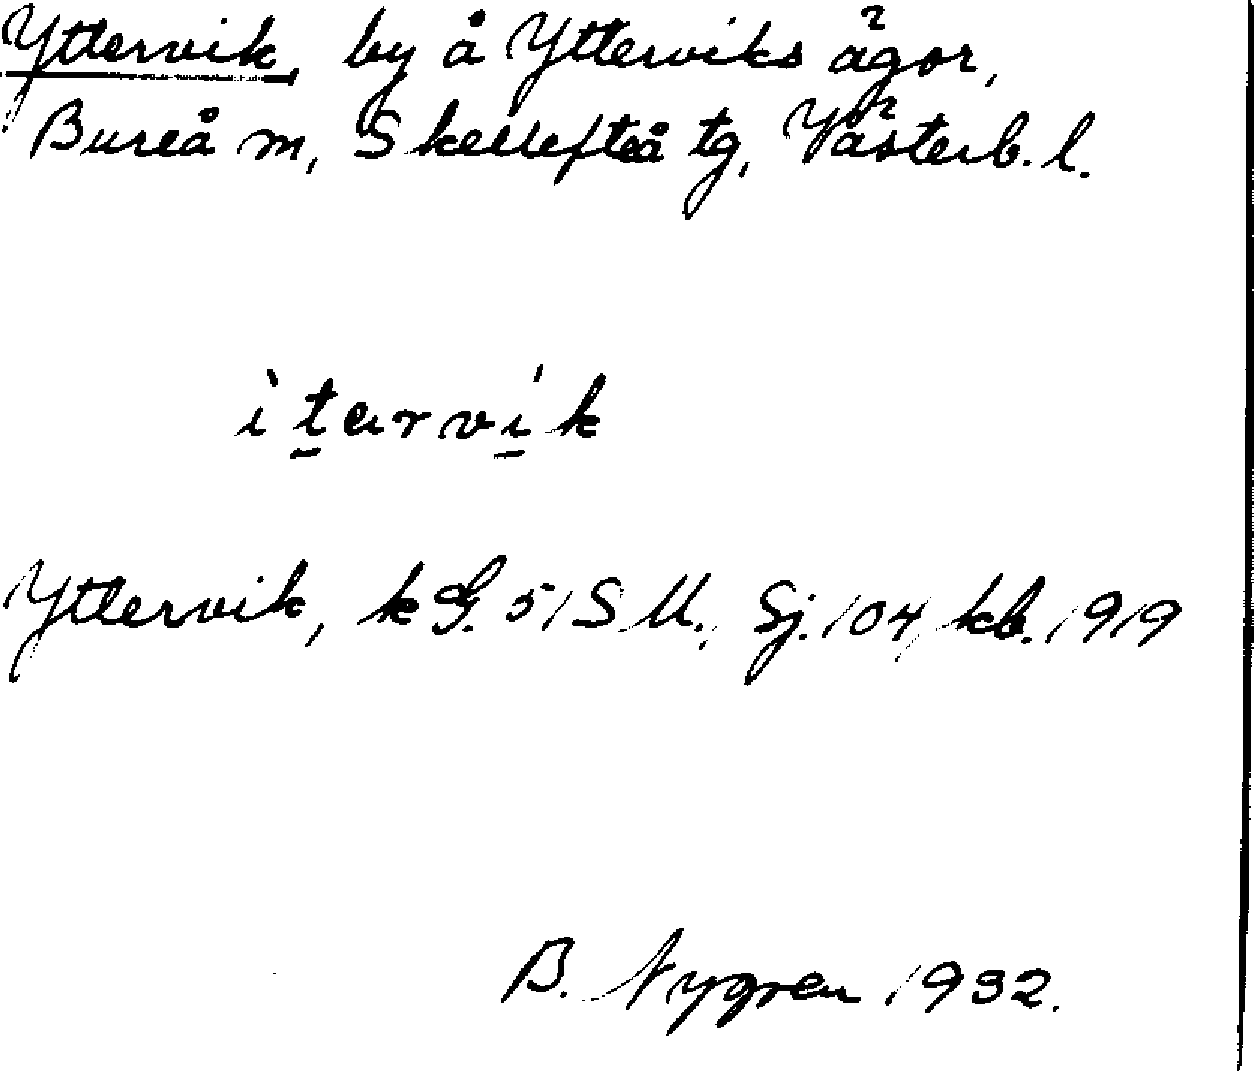 Yttervik, by å Ytterviks ägor,
Bureå m, Skellefteå tg, Västerb. l.
ìtarvík
Yttervik, k G. 51 S U., Sj. 104, kb. 1919
B. Nygren 1932.